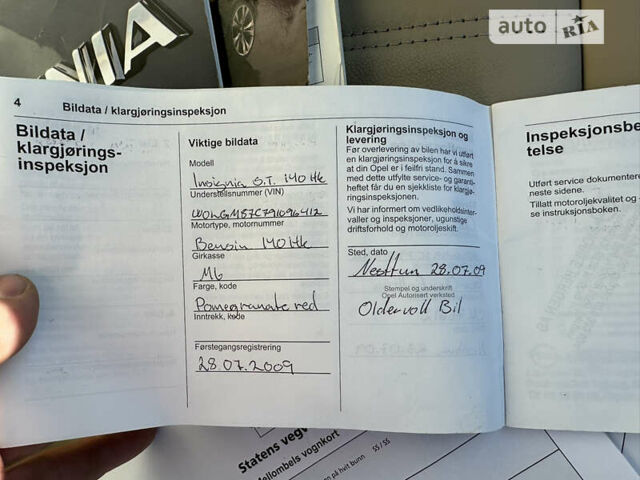 auto RIA
4
Bildata / klargjøringsinspeksjon
Bildata /
klargjørings-
inspeksjon
Viktige bildata
Modell
Insignia S.T. 140 Hk
Understellsnummer (VIN)
Motortype, motornummer
Bensin 140 Hk
Girkasse
M6
Farge, kode
Pomegranate red
Inntrekk, kode
Førstegangsregistrering
28.07.2009
Klargjøringsinspeksjon og
levering
Før overlevering av bilen har vi utført
en klargjøringsinspeksjon for å sikre
at din Opel er i feilfri stand. Sammen
med dette utfylte service- og garanti-
heftet får du en sjekkliste for klargjø-
ringsinspeksjonen.
Vi har informert om vedlikeholdsinter-
valler og inspeksjoner, ugunstige
driftsforhold og motoroljeskift.
Sted, dato
Nesttun 28.07.09
Stempel og underskrift
Opel Autorisert verksted
Oldervoll Bil
Inspeksjonsbe
telse
Utført service dokumentere
neste sidene.
Tillatt motoroljekvalitet og
se instruksjonsboken.
Statens vegv
Mellombels vognkort
på hvit bunn 55 / 55